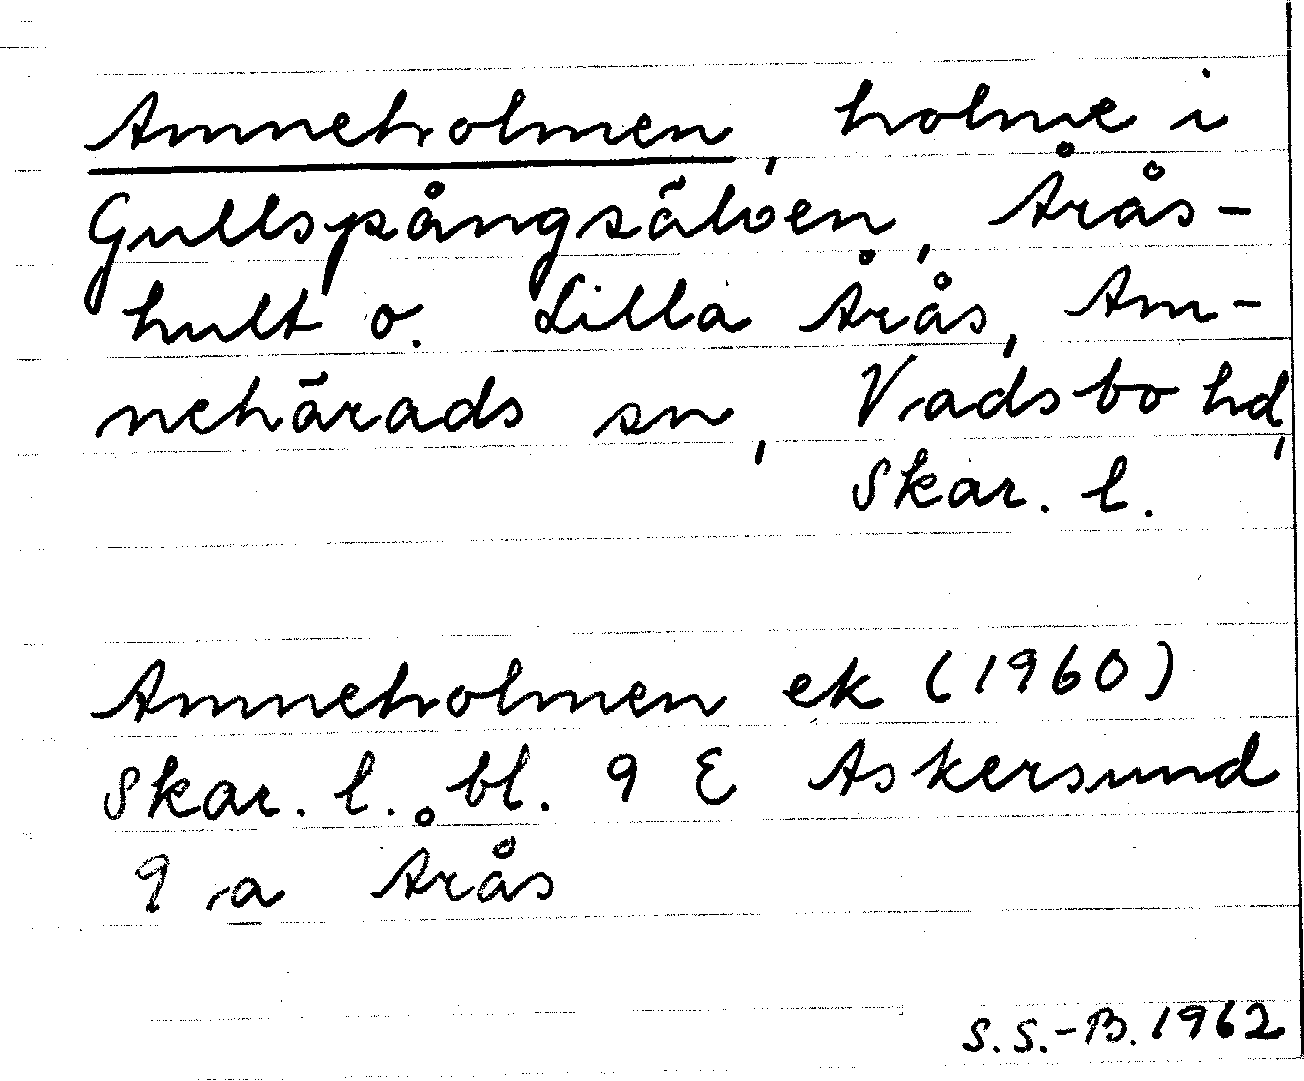 Amneholmen, holme i
Gullspångsälven, Årås-
hult o. Lilla Årås, Am-
nehärads sn, Vadsbo hd,
Skar. l.
Amneholmen ek (1960)
Skar. l. bl. 9 E Askersund
9 a Årås
S. S.-B. 1962